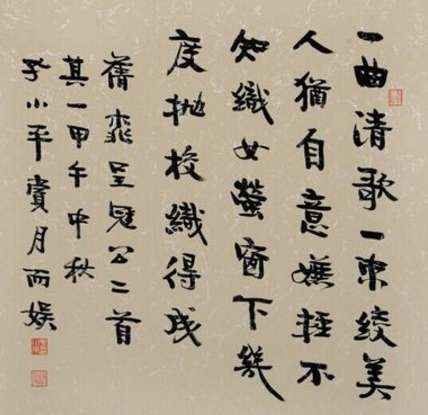 一曲清歌一束綾美
人猶自意嫌輕不
知織女螢窗下幾
度抛梭織得成
蒨桃呈寇公二首
其一甲午中秋
小平賞月而娛